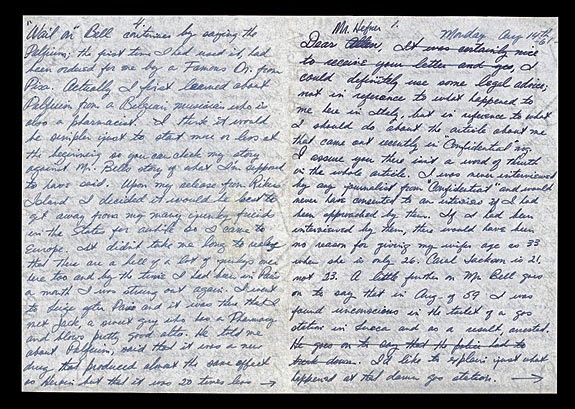 Mr. Hefner 1.
Monday Aug 14th
61
Dear Allen, It was certainly nice
to receive your letter and yes, I
could definitely use some legal advice;
not in reference to what happened to
me here in Italy, but in reference to what
I should do about the article about me
that came out recently in "Confidential" mag.
I assure you there isn't a word of truth
in the whole article. I was never interviewed
by any journalist from "Confidential" and would
never have consented to an interview if I had
been approached by them. If I had been
interviewed by them, there would have been
no reason for giving my wifes age as 33
when she is only 26. Carol Jackson is 21,
not 23. A little further on Mr. Bell goes
on to say that in Aug. of 59 I was
found unconscious in the toilet of a gas
station in Lucca and as a result, arrested.
He goes on to say that the police had to
break down. I'd like to explain just what
happened at the damn gas station. →
4.
"Wail on" Bell continues by saying the
Palfium; the first time I had used it had
been ordered for me by a Famous Dr. from
Pisa. Actually I first learned about
Palfium from a Belgian musician who is
also a pharmacist. I think it would
be simpler just to start more or less at
the beginning so you can check my story
against Mr. Bells story of what I'm supposed
to have said. Upon my release from Rikers
Island I decided it would be best to
get away from my many friends
in the States for awhile so I came to
Europe. It didn't take me long to realize
that there are a hell of a lot of over
here too and by the time I had been in Paris
a month I was strung out again. I went
to Liege after Paris and it was there that I
met Jack, a sweet guy who has a Pharmacy
and blows pretty good alto. He told me
about Palfium, said that it was a new
drug that produced almost the same effect
as Heroin but that it was 20 times less →